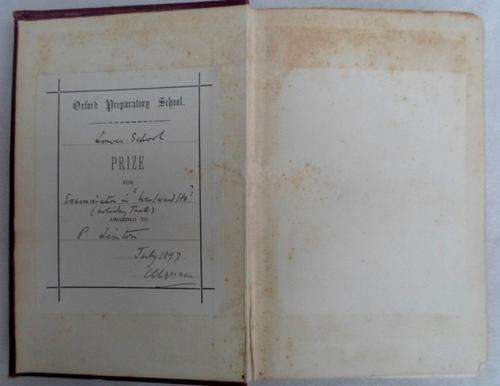 Oxford Preparatory School.
Lower School
PRIZE
FOR
Examination in "Westward Ho"
(Holiday Task)
AWARDED TO
P. Linton
July 1897